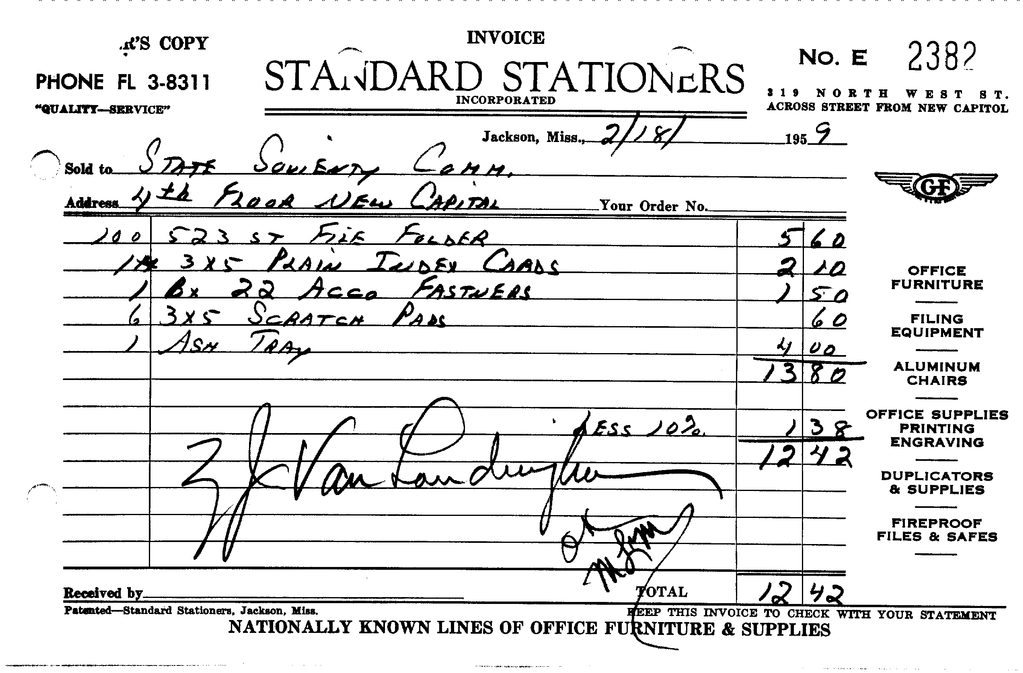 R'S COPY
INVOICE
No. E 2382
PHONE FL 3-8311
STANDARD STATIONERS
"QUALITY—SERVICE"
INCORPORATED
319 NORTH WEST ST.
ACROSS STREET FROM NEW CAPITOL
Jackson, Miss., 2/18/ 1959
Sold to STATE SOVIENTY COMM.
Address 4th FLOOR NEW CAPITAL Your Order No.
GF
100 523 ST FILE FOLDER 5 60
1M 3X5 PLAIN INDEX CARDS 2 10
1 BX 22 ACCO FASTNERS 1 50
6 3X5 SCRATCH PADS 60
1 ASH TRAY 4 00
13 80
LESS 10% 1 38
12 42
OFFICE
FURNITURE
FILING
EQUIPMENT
ALUMINUM
CHAIRS
OFFICE SUPPLIES
PRINTING
ENGRAVING
DUPLICATORS
& SUPPLIES
FIREPROOF
FILES & SAFES
Van Landingham
ok
Received by TOTAL 12 42
Patented—Standard Stationers, Jackson, Miss. KEEP THIS INVOICE TO CHECK WITH YOUR STATEMENT
NATIONALLY KNOWN LINES OF OFFICE FURNITURE & SUPPLIES